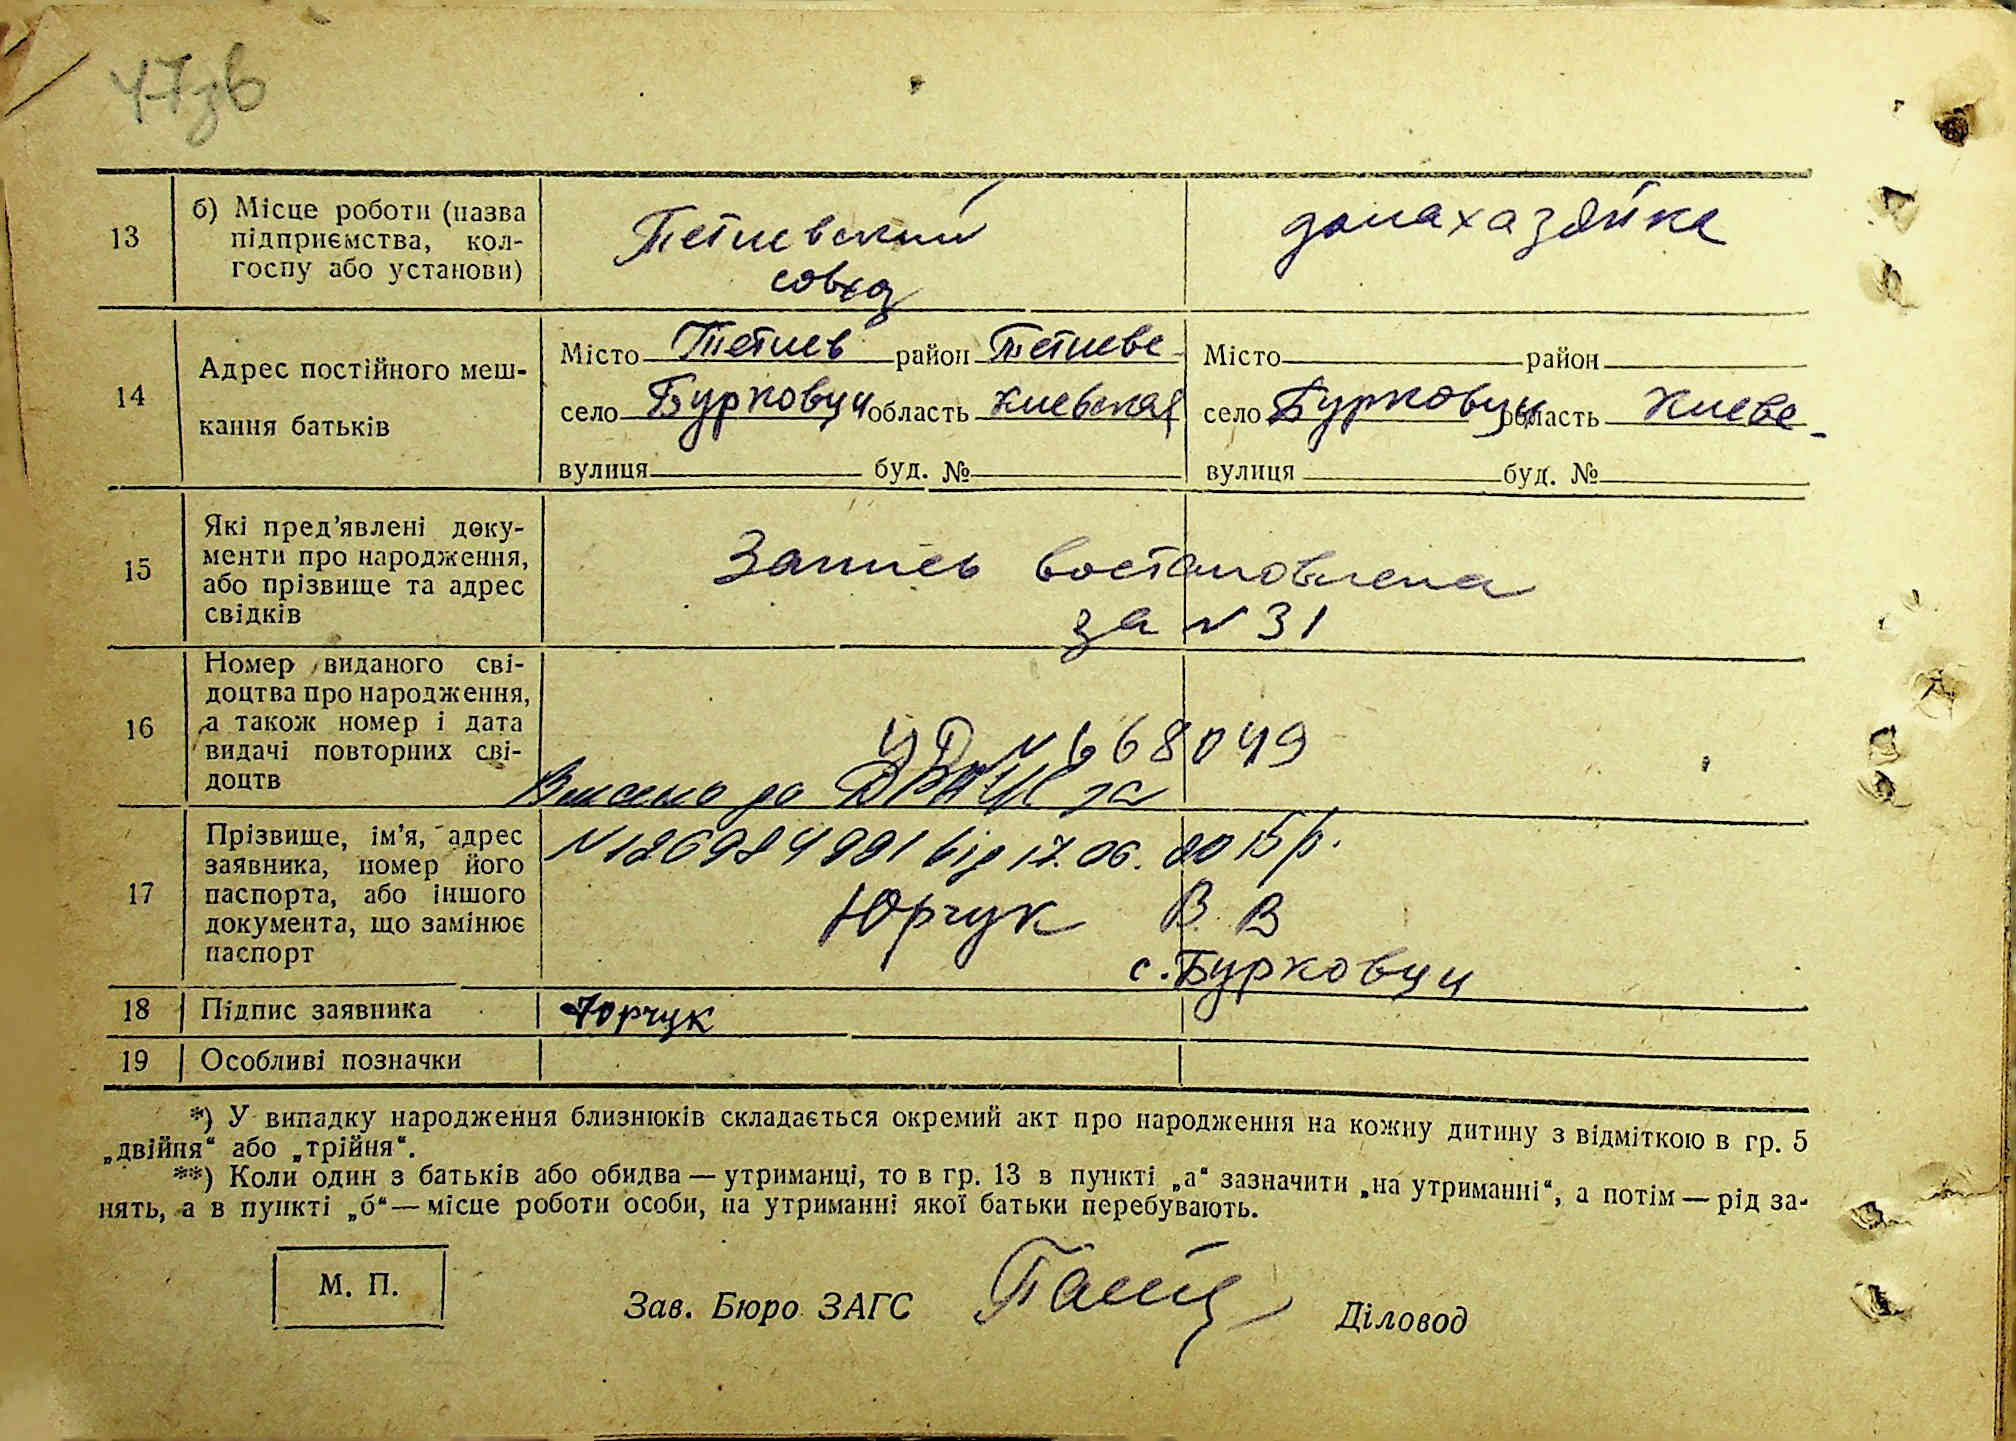 47зв
13 б) Місце роботи (назва підприємства, колгоспу або установи) Тетиевский домахазяйка
совхоз
14 Адрес постійного меш-
кання батьків
Місто Тетиев район Тетиевс Місто район
село Бурковци область киевская село Бурковци область Киевс
вулиця буд. № вулиця буд. №
15 Які пред’явлені доку-
менти про народження,
або прізвище та адрес
свідків
Запись востановлена
за N 31
16 Номер виданого сві-
доцтва про народження,
а також номер і дата
видачі повторних сві-
доцтв
N 668049
Внесено до ДРАЦС за
17 Прізвище, ім’я, адрес
заявника, номер його
паспорта, або іншого
документа, що замінює
паспорт
N 126984991 від 17.06.2015р.
Юрчук В. В
с. Бурковци
18 Підпис заявника Юрчук
19 Особливі позначки
*) У випадку народження близнюків складається окремий акт про народження на кожну дитину з відміткою в гр. 5
„двійня“ або „трійня“.
**) Коли один з батьків або обидва — утриманці, то в гр. 13 в пункті „а“ зазначити „на утриманні“, а потім — рід за-
нять, а в пункті „б“ — місце роботи особи, на утриманні якої батьки перебувають.
М. П.
Зав. Бюро ЗАГС Діловод